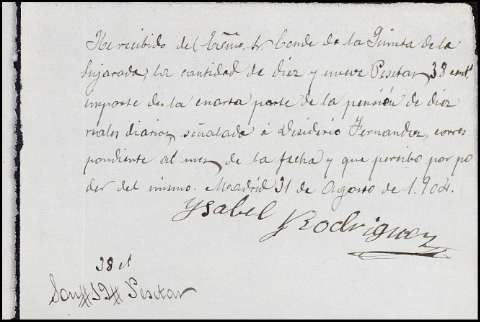 He recibido del Exmo. Sr. Conde de la Quinta de la
Enjarada, la cantidad de diez y nueve Pesetas, 38 cent.s
importe de la cuarta parte de la pensión de diez
reales diarios, señalada á Desiderio Fernandez, corres
pondiente al mes de la fecha y que percibo por po
der del mismo. Madrid 31 de Agosto de 1.904.
Ysabel Rodriguez
38 ct
Son 19 Pesetas